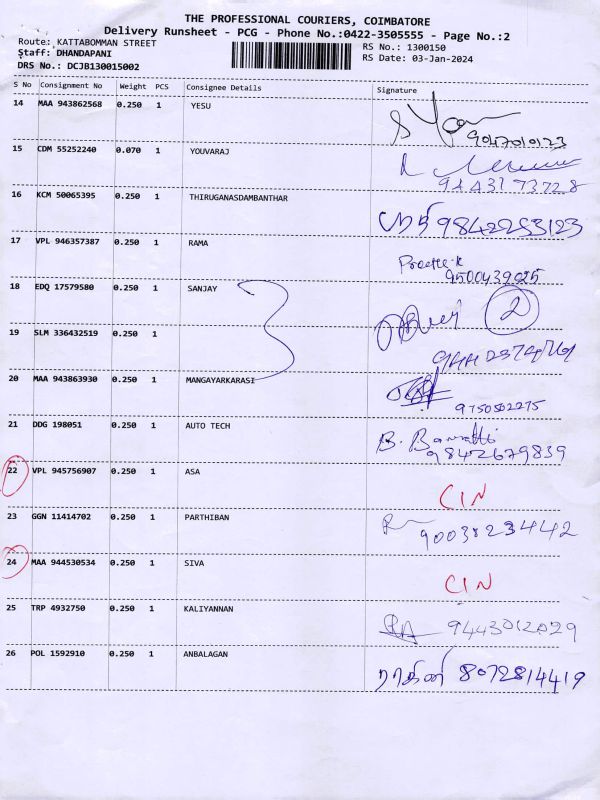 THE PROFESSIONAL COURIERS, COIMBATORE
Delivery Runsheet - PCG - Phone No.:0422-3505555 - Page No.:2
Route: KATTABOMMAN STREET
RS No.: 1300150
Staff: DHANDAPANI
RS Date: 03-Jan-2024
DRS No.: DCJB130015002
S No Consignment No Weight PCS Consignee Details Signature
14 MAA 943862568 0.250 1 YESU
9047010123
15 CDM 55252240 0.070 1 YOUVARAJ
9443173728
16 KCM 50065395 0.250 1 THIRUGANASDAMBANTHAR
9842253123
17 VPL 946357387 0.250 1 RAMA
9500439025
18 EDQ 17579580 0.250 1 SANJAY
2
19 SLM 336432519 0.250 1
20 MAA 943863930 0.250 1 MANGAYARKARASI
9750502275
21 DDG 198051 0.250 1 AUTO TECH
B.
9842679839
22 VPL 945756907 0.250 1 ASA
CIN
23 GGN 11414702 0.250 1 PARTHIBAN
9003823442
24 MAA 944530534 0.250 1 SIVA
CIN
25 TRP 4932750 0.250 1 KALIYANNAN
9443012029
26 POL 1592910 0.250 1 ANBALAGAN
8072814419